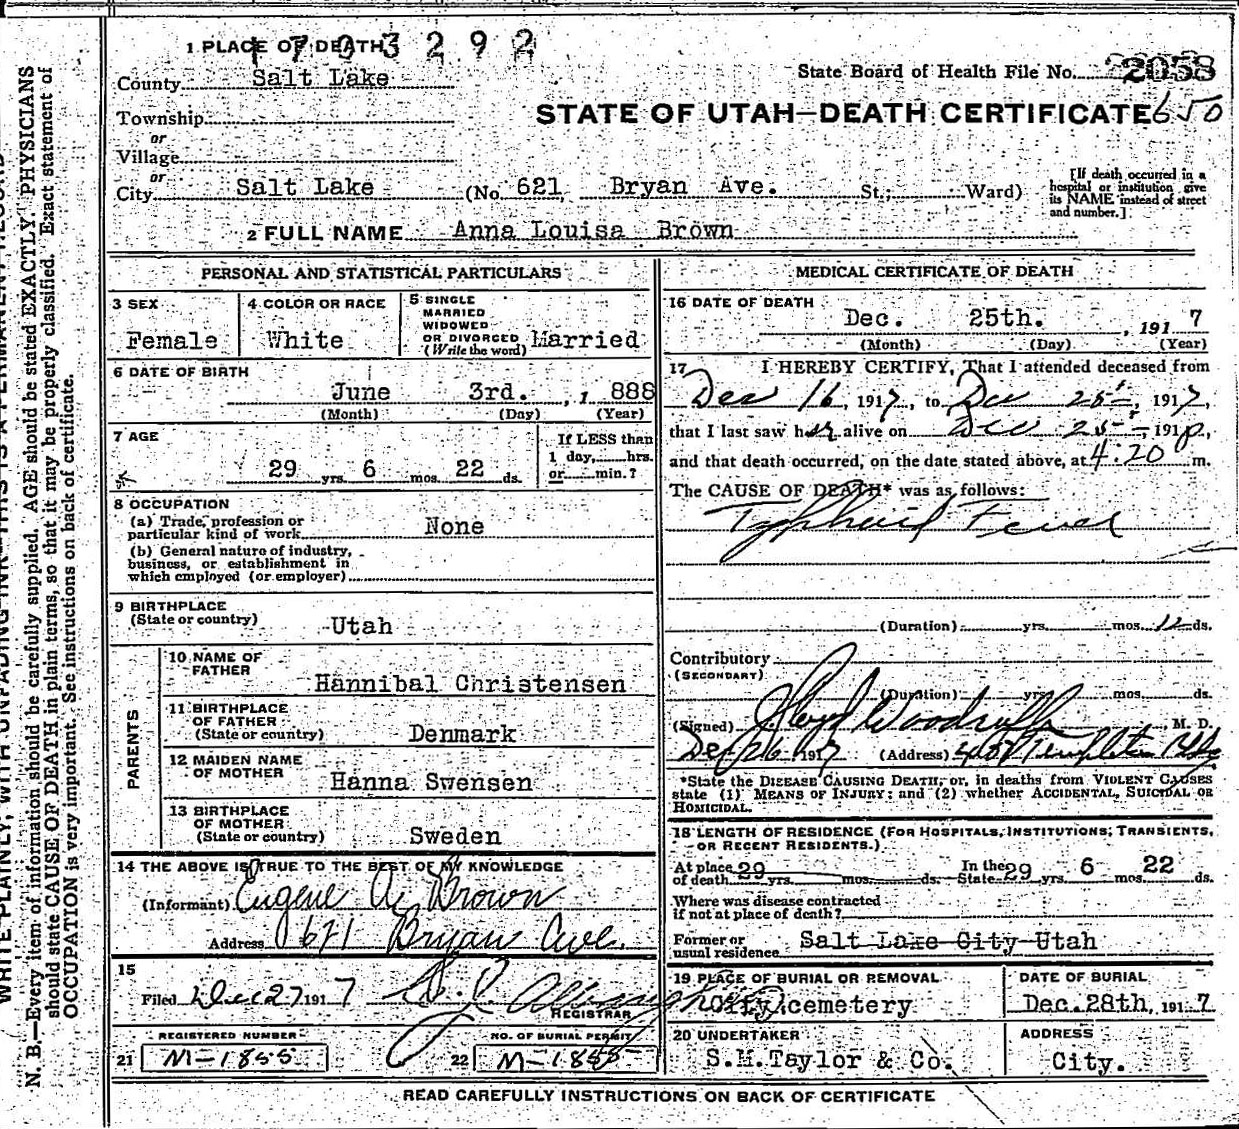 1 PLACE OF DEATH
1703292
County Salt Lake
State Board of Health File No. 2058
Township
STATE OF UTAH—DEATH CERTIFICATE 650
or
Village
or
City Salt Lake (No. 621 Bryan Ave. St.; Ward)
[If death occurred in a
hospital or institution give
its NAME instead of street
and number.]
2 FULL NAME Anna Louisa Brown
PERSONAL AND STATISTICAL PARTICULARS
3 SEX
Female
4 COLOR OR RACE
White
5 SINGLE
MARRIED
WIDOWED
OR DIVORCED
(Write the word) Married
6 DATE OF BIRTH
June 3rd. , 1 888
(Month) (Day) (Year)
7 AGE
29 yrs. 6 mos. 22 ds.
If LESS than
1 day, hrs.
or min.?
8 OCCUPATION
(a) Trade, profession or
particular kind of work None
(b) General nature of industry,
business, or establishment in
which employed (or employer)
9 BIRTHPLACE
(State or country) Utah
PARENTS
10 NAME OF
FATHER
Hannibal Christensen
11 BIRTHPLACE
OF FATHER
(State or country) Denmark
12 MAIDEN NAME
OF MOTHER
Hanna Swensen
13 BIRTHPLACE
OF MOTHER
(State or country) Sweden
14 THE ABOVE IS TRUE TO THE BEST OF MY KNOWLEDGE
(Informant) Eugene A. Brown
Address 621 Bryan Ave.
15
Filed Dec 27 191 7
REGISTRAR
REGISTERED NUMBER
21 M-1855
NO. OF BURIAL PERMIT
22 M-1855
MEDICAL CERTIFICATE OF DEATH
16 DATE OF DEATH
Dec. 25th. , 191 7
(Month) (Day) (Year)
17 I HEREBY CERTIFY, That I attended deceased from
Dec 16, 1917, to Dec 25, 1917,
that I last saw her alive on Dec 25, 191
and that death occurred, on the date stated above, at 4:20 m.
The CAUSE OF DEATH* was as follows:
Typhoid Fever
(Duration) yrs. mos. 12 ds.
Contributory
(SECONDARY)
(Duration) yrs. mos. ds.
(Signed) Woodruff M. D.
Dec 26 1917 (Address) Templeton Bldg
*State the DISEASE CAUSING DEATH, or, in deaths from VIOLENT CAUSES
state (1) MEANS OF INJURY; and (2) whether ACCIDENTAL, SUICIDAL OR
HOMICIDAL.
18 LENGTH OF RESIDENCE (FOR HOSPITALS, INSTITUTIONS, TRANSIENTS,
OR RECENT RESIDENTS.)
At place
of death 29 yrs. mos. ds.
In the
State 29 yrs. 6 mos. 22 ds.
Where was disease contracted
if not at place of death?
Former or
usual residence Salt Lake City Utah
19 PLACE OF BURIAL OR REMOVAL
City cemetery
DATE OF BURIAL
Dec. 28th, 191 7
20 UNDERTAKER
S.M.Taylor & Co.
ADDRESS
City.
READ CAREFULLY INSTRUCTIONS ON BACK OF CERTIFICATE
N. B.—Every item of information should be carefully supplied. AGE should be stated EXACTLY. PHYSICIANS
should state CAUSE OF DEATH in plain terms, so that it may be properly classified. Exact statement of
OCCUPATION is very important. See instructions on back of certificate.